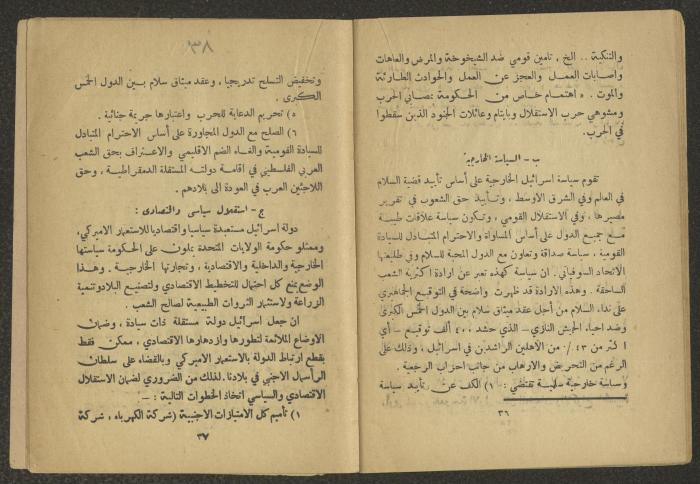 والتنكية .. الخ , تامين قومي ضد الشيخوخة والمرض والعاهات
واصابات العمل والعجز عن العمل والحوادث الطارئة
والموت . ه اهتمام خاص من الحكومة بمصابي الحرب
ومشوهي حرب الاستقلال وبايتام وعائلات الجنود الذين سقطوا
في الحرب.
ب - السياسة الخارجية
تقوم سياسة اسرائيل الخارجية على أساس تأييد قضية السلام
في العالم وفي الشرق الاوسط , وتأييد حق الشعوب في تقرير
مصيرها , وفي الاستقلال القومي , وتكون سياسة علاقات طيبة
مع جميع الدول على أساس المساواة والاحترام المتبادل للسيادة
القومية , سياسة صداقة وتعاون مع الدول المحبة للسلام وفي طليعتها
الاتحاد السوفياتي . ان سياسة كهذه تعبر عن ارادة اكثرية الشعب
الساحقة . وهذه الارادة قد ظهرت واضحة في التوقيع الجماهيري
على نداء السلام من أجل عقد ميثاق سلام بين الدول الخمس الكبرى
وضد احياء الجيش النازي - الذي حشد ٤٠٠ ألف توقيع - أي
اكثر من ٤٣ ٪ من الاهلين الراشدين في اسرائيل , وذلك على
الرغم من التحريض والارهاب من جانب احزاب الرجعية .
وسياسة خارجية سلمية تقتضي : ١) الكف عن تأييد سياسة
٣٦
٣٨
وتخفيض التسلح تدريجيا , وعقد ميثاق سلام بين الدول الخمس
الكبرى .
٥) تحريم الدعاية للحرب واعتبارها جريمة جنائية .
٦) الصلح مع الدول المجاورة على أساس الاحترام المتبادل
للسيادة القومية والغاء الضم الاقليمي والاعتراف بحق الشعب
العربي الفلسطيني في اقامة دولته المستقلة الدمقراطية , وحق
اللاجئين العرب في العودة الى بلادهم .
ج - استقلال سياسي واقتصادي :
دولة اسرائيل مستعبدة سياسيا واقتصاديا للاستعمار الاميركي,
وممثلو حكومة الولايات المتحدة يملون على الحكومة سياستها
الخارجية والداخلية والاقتصادية , وتجارتها الخارجية . وهذا
الوضع يمنع كل احتمال للتخطيط الاقتصادي ولتصنيع البلاد وتنمية
الزراعة ولاستثمار الثروات الطبيعية لصالح الشعب .
ان جعل اسرائيل دولة مستقلة ذات سيادة , وضمان
الاوضاع الملائمة لتطورها وازدهارها الاقتصادي , ممكن فقط
بقطع ارتباط الدولة بالاستعمار الاميركي وبالقضاء على سلطان
الرأسمال الاجنبي في بلادنا. لذلك من الضروري لضمان الاستقلال
الاقتصادي والسياسي اتخاذ الخطوات التالية : -
١) تأميم كل الامتيازات الاجنبية (شركة الكهرباء , شركة
٣٧